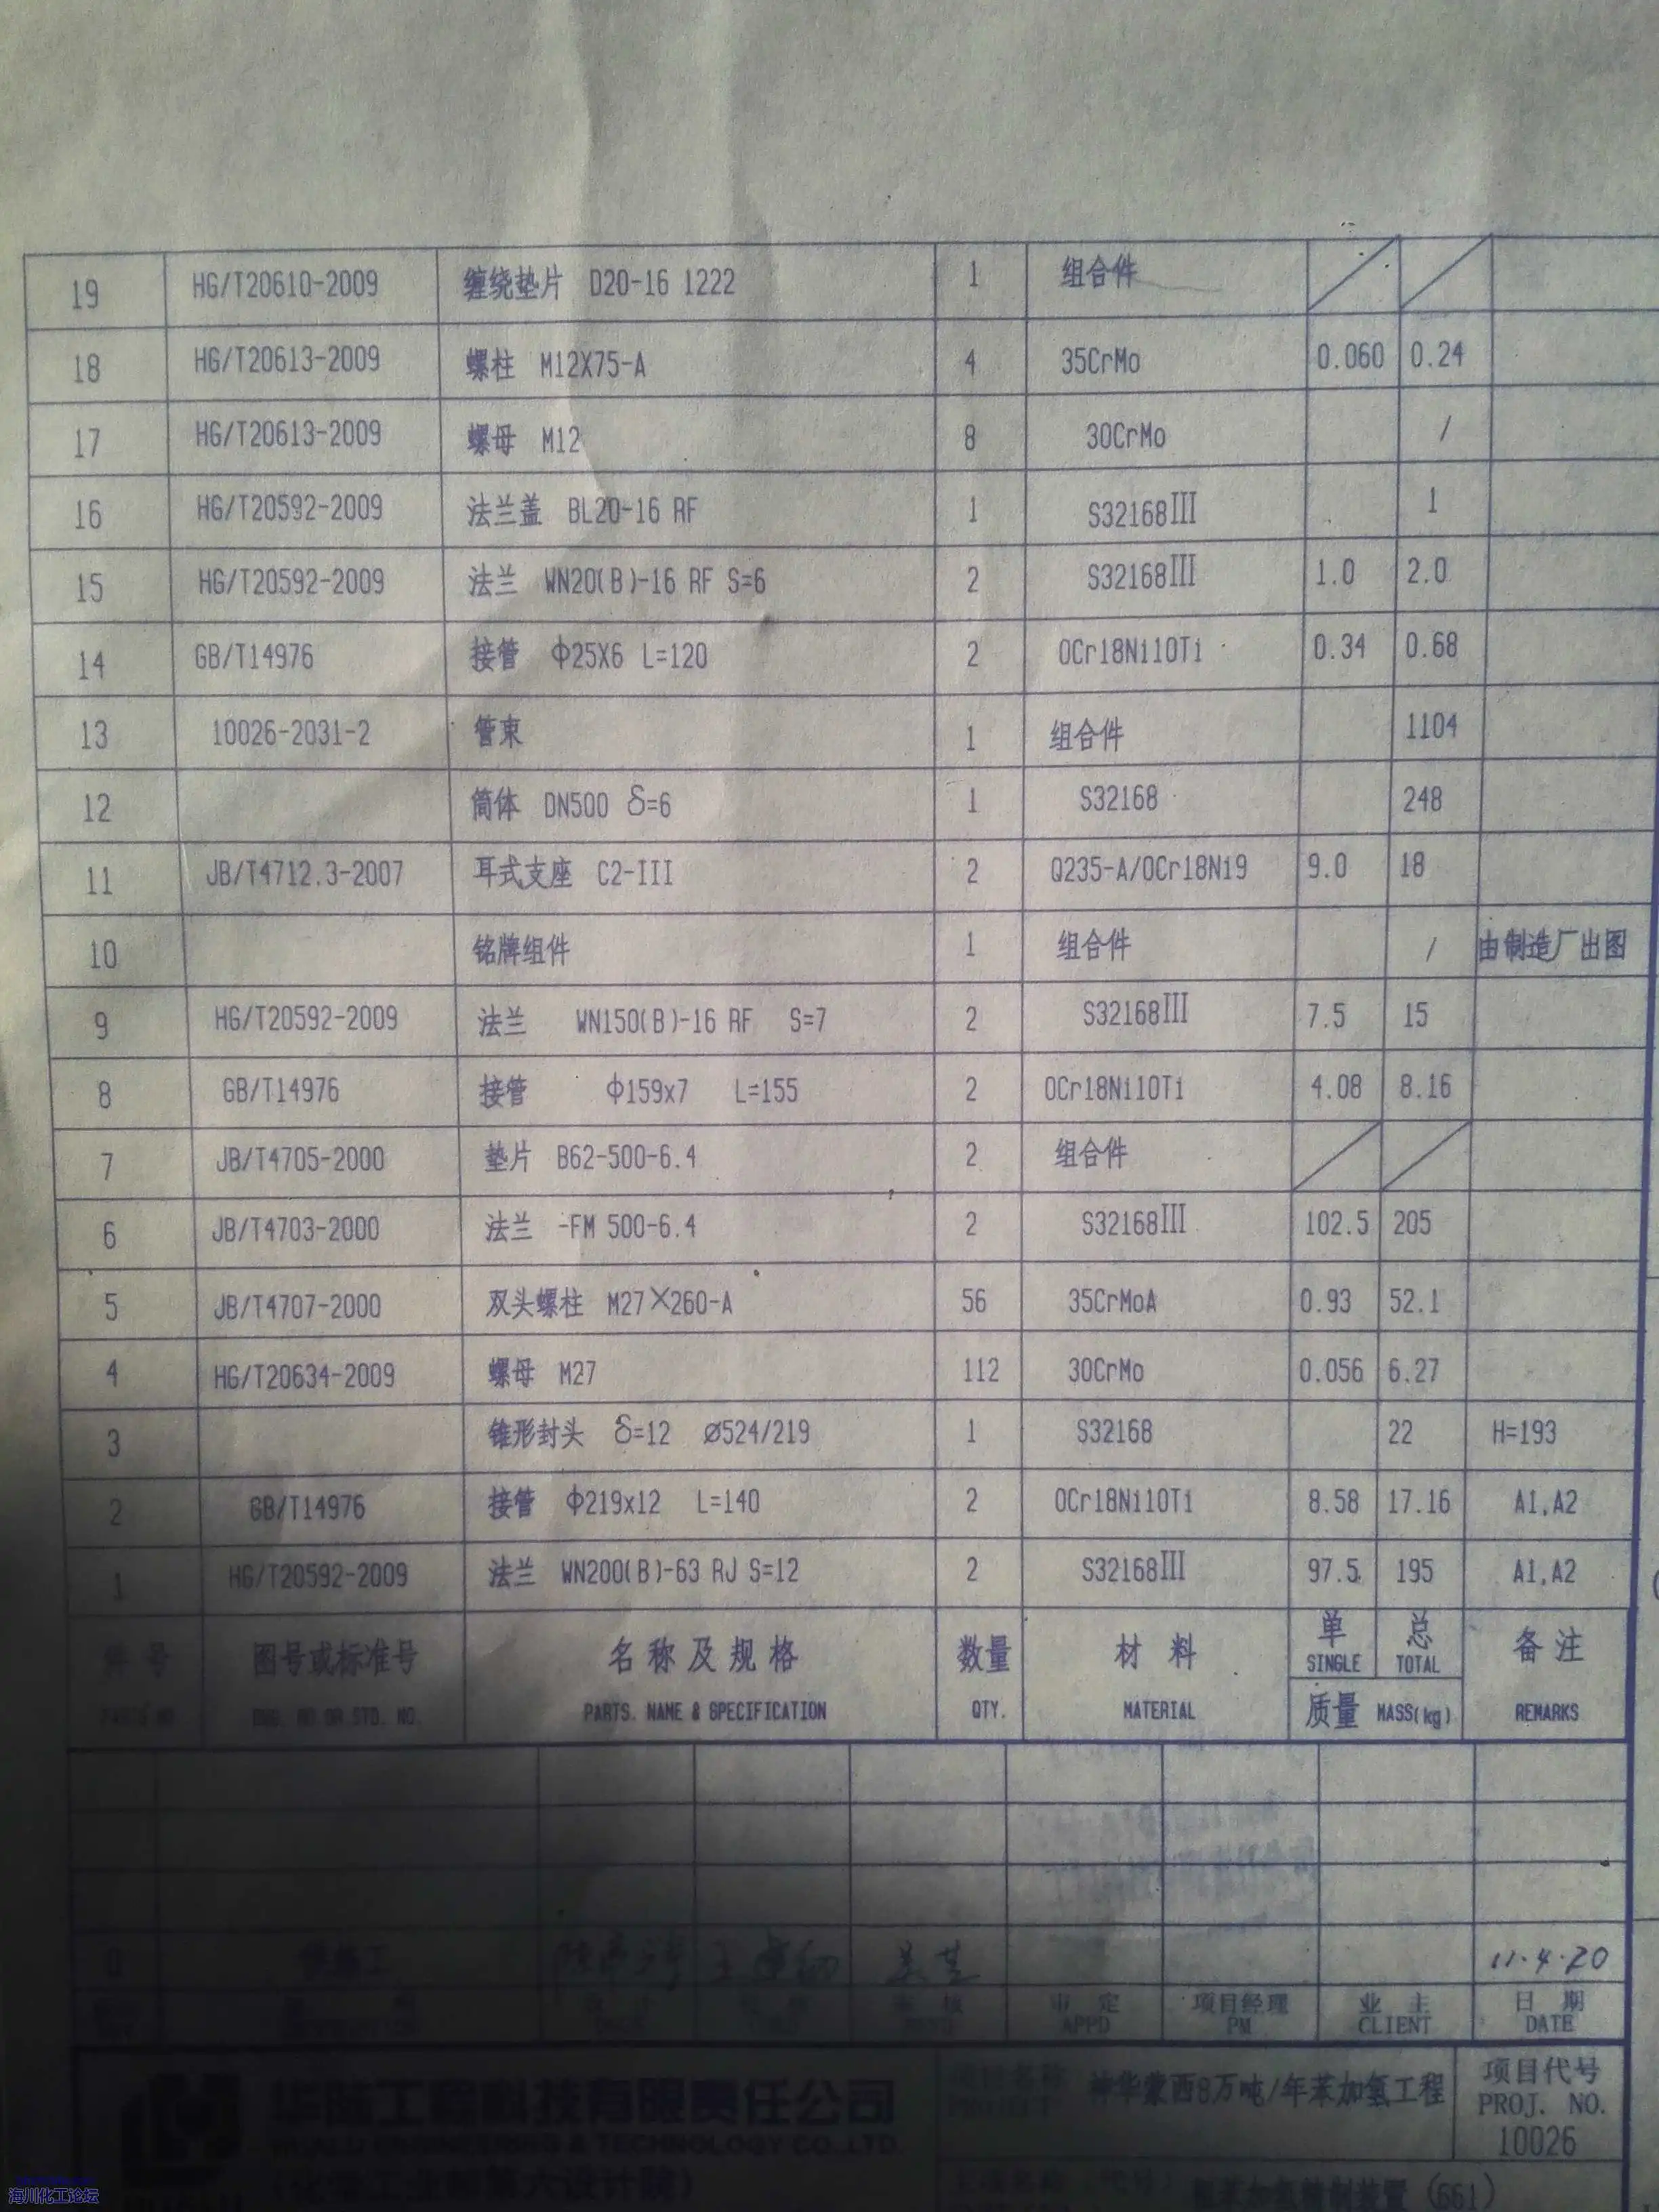 19 HG/T20610-2009 缠绕垫片 D20-16 1222 1 组合件
18 HG/T20613-2009 螺柱 M12X75-A 4 35CrMo 0.060 0.24
17 HG/T20613-2009 螺母 M12 8 30CrMo /
16 HG/T20592-2009 法兰盖 BL20-16 RF 1 S32168Ⅲ 1
15 HG/T20592-2009 法兰 WN20(B)-16 RF S=6 2 S32168Ⅲ 1.0 2.0
14 GB/T14976 接管 φ25X6 L=120 2 0Cr18Ni10Ti 0.34 0.68
13 10026-2031-2 管束 1 组合件 1104
12 筒体 DN500 δ=6 1 S32168 248
11 JB/T4712.3-2007 耳式支座 C2-III 2 Q235-A/0Cr18Ni9 9.0 18
10 铭牌组件 1 组合件 / 由制造厂出图
9 HG/T20592-2009 法兰 WN150(B)-16 RF S=7 2 S32168Ⅲ 7.5 15
8 GB/T14976 接管 φ159x7 L=155 2 0Cr18Ni10Ti 4.08 8.16
7 JB/T4705-2000 垫片 B62-500-6.4 2 组合件
6 JB/T4703-2000 法兰 -FM 500-6.4 2 S32168Ⅲ 102.5 205
5 JB/T4707-2000 双头螺柱 M27×260-A 56 35CrMoA 0.93 52.1
4 HG/T20634-2009 螺母 M27 112 30CrMo 0.056 6.27
3 锥形封头 δ=12 Ø524/219 1 S32168 22 H=193
2 GB/T14976 接管 φ219x12 L=140 2 0Cr18Ni10Ti 8.58 17.16 A1,A2
1 HG/T20592-2009 法兰 WN200(B)-63 RJ S=12 2 S32168Ⅲ 97.5 195 A1,A2
件号 图号或标准号 名称及规格 数量 材料 单 总 备注
SINGLE TOTAL
PARTS NO. DWG. NO OR STD. NO. PARTS. NAME & SPECIFICATION QTY. MATERIAL 质量 MASS(kg) REMARKS
0 11.4.20
审定 项目经理 业主 日期
APPD PM CLIENT DATE
华陆工程科技有限责任公司
HUALU ENGINEERING & TECHNOLOGY CO.,LTD.
项目名称 神华蒙西8万吨/年苯加氢工程
项目代号
PROJ. NO.
10026
粗苯加氢精制装置 (661)
海川化工论坛